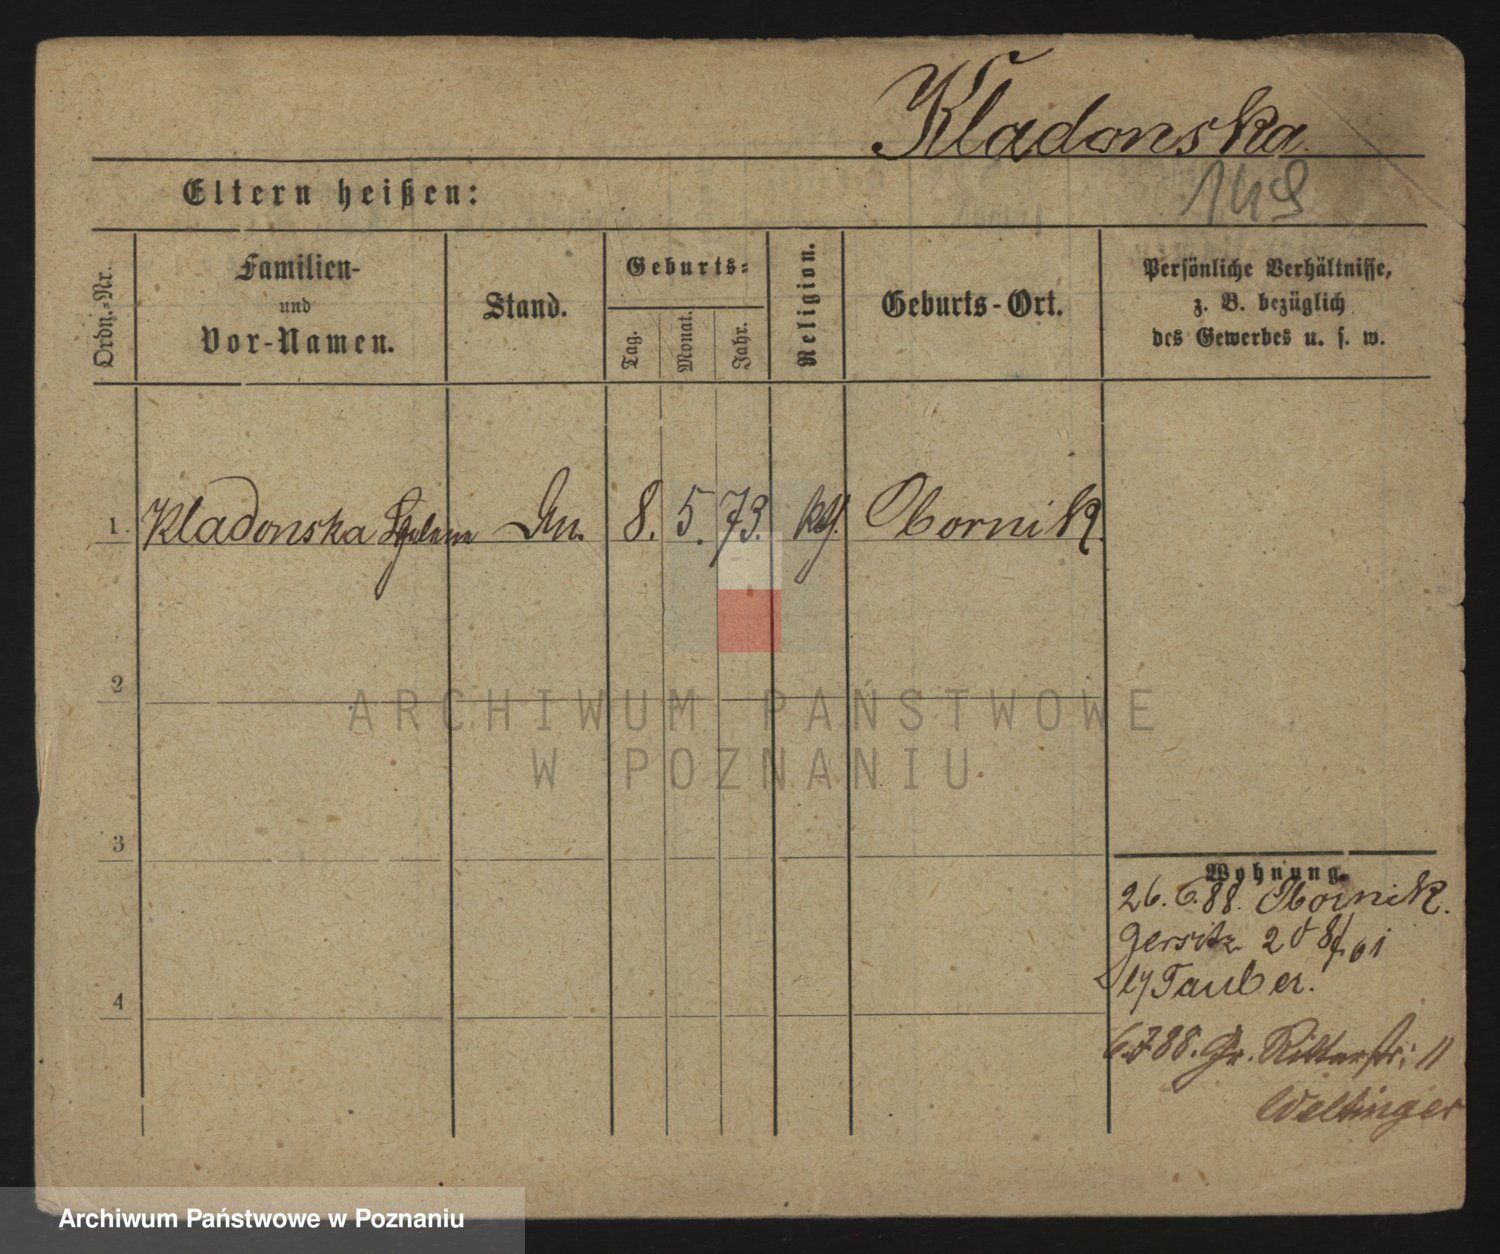 Kladonska
149
Eltern heißen:
Ordn.-Nr.
Familien-
und
Vor-Namen.
Stand.
Geburts-
Tag.
Monat.
Jahr.
Religion.
Geburts-Ort.
Persönliche Verhältnisse,
z. B. bezüglich
des Gewerbes u. s. w.
1. Kladonska Helene 8. 5. 73. kth. Obornik
2
3
4
Wohnung.
26. 6. 88. Obornik.
Gersitz
Tauber.
6.7.88. Gr. Ritterstr. 11
Weltinger
ARCHIWUM PAŃSTWOWE
W POZNANIU
Archiwum Państwowe w Poznaniu